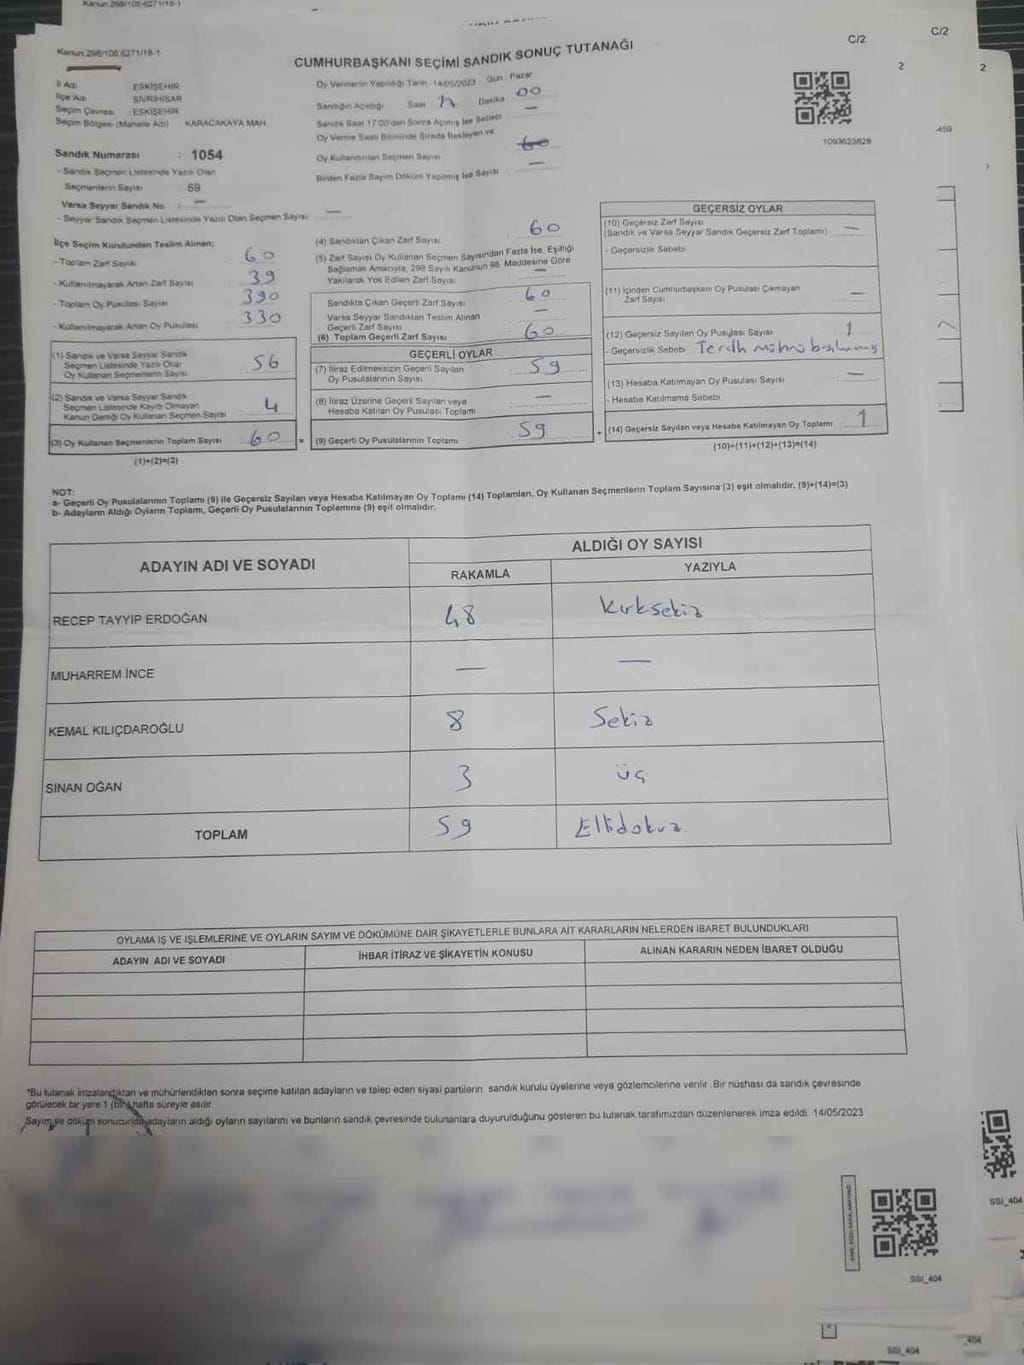 Kanun:298/105;6271/18-1
C/2
C/2
Kanun:298/105;6271/18-1
CUMHURBAŞKANI SEÇİMİ SANDIK SONUÇ TUTANAĞI
2
2
İl Adı : ESKİŞEHİR
İlçe Adı : SİVRİHİSAR
Seçim Çevresi : ESKİŞEHİR
Seçim Bölgesi (Mahalle Adı) KARACAKAYA MAH.
Oy Vermenin Yapıldığı Tarih : 14/05/2023 Gün : Pazar
Sandığın Açıldığı Saat 17 Dakika 00
Sandık Saat 17:00'den Sonra Açılmış İse Sebebi —
Oy Verme Saati Bitiminde Sırada Bekleyen ve
Oy Kullandırılan Seçmen Sayısı
Birden Fazla Sayım Döküm Yapılmış İse Sayısı —
1093623828
459
Sandık Numarası : 1054
- Sandık Seçmen Listesinde Yazılı Olan
Seçmenlerin Sayısı : 69
Varsa Seyyar Sandık No : —
- Seyyar Sandık Seçmen Listesinde Yazılı Olan Seçmen Sayısı : —
İlçe Seçim Kurulundan Teslim Alınan;
- Toplam Zarf Sayısı 60
- Kullanılmayarak Artan Zarf Sayısı 39
- Toplam Oy Pusulası Sayısı 390
- Kullanılmayarak Artan Oy Pusulası 330
(1) Sandık ve Varsa Seyyar Sandık
Seçmen Listesinde Yazılı Olup
Oy Kullanan Seçmenlerin Sayısı 56
(2) Sandık ve Varsa Seyyar Sandık
Seçmen Listesinde Kayıtlı Olmayan
Kanun Gereği Oy Kullanan Seçmen Sayısı 4
(3) Oy Kullanan Seçmenlerin Toplam Sayısı 60 =
(1)+(2)=(3)
(4) Sandıktan Çıkan Zarf Sayısı 60
(5) Zarf Sayısı Oy Kullanan Seçmen Sayısından Fazla İse, Eşitliği
Sağlamak Amacıyla; 298 Sayılı Kanunun 98. Maddesine Göre
Yakılarak Yok Edilen Zarf Sayısı —
Sandıkta Çıkan Geçerli Zarf Sayısı 60
Varsa Seyyar Sandıktan Teslim Alınan
Geçerli Zarf Sayısı —
(6) Toplam Geçerli Zarf Sayısı 60
GEÇERLİ OYLAR
(7) İtiraz Edilmeksizin Geçerli Sayılan
Oy Pusulalarının Sayısı 59
(8) İtiraz Üzerine Geçerli Sayılan veya
Hesaba Katılan Oy Pusulası Toplamı —
(9) Geçerli Oy Pusulalarının Toplamı 59 +
GEÇERSİZ OYLAR
(10) Geçersiz Zarf Sayısı
(Sandık ve Varsa Seyyar Sandık Geçersiz Zarf Toplamı) —
- Geçersizlik Sebebi :
(11) İçinden Cumhurbaşkanı Oy Pusulası Çıkmayan
Zarf Sayısı —
(12) Geçersiz Sayılan Oy Pusulası Sayısı 1
- Geçersizlik Sebebi : Mührü basılmamış
(13) Hesaba Katılmayan Oy Pusulası Sayısı —
- Hesaba Katılmama Sebebi :
(14) Geçersiz Sayılan veya Hesaba Katılmayan Oy Toplamı : 1
(10)+(11)+(12)+(13)=(14)
NOT:
a- Geçerli Oy Pusulalarının Toplamı (9) ile Geçersiz Sayılan veya Hesaba Katılmayan Oy Toplamı (14) Toplamları, Oy Kullanan Seçmenlerin Toplam Sayısına (3) eşit olmalıdır. (9)+(14)=(3)
b- Adayların Aldığı Oyların Toplamı, Geçerli Oy Pusulalarının Toplamına (9) eşit olmalıdır.
ADAYIN ADI VE SOYADI
ALDIĞI OY SAYISI
RAKAMLA YAZIYLA
RECEP TAYYİP ERDOĞAN 48 Kırksekiz
MUHARREM İNCE — —
KEMAL KILIÇDAROĞLU 8 Sekiz
SİNAN OĞAN 3 üç
TOPLAM 59 Ellidokuz
OYLAMA İŞ VE İŞLEMLERİNE VE OYLARIN SAYIM VE DÖKÜMÜNE DAİR ŞİKAYETLERLE BUNLARA AİT KARARLARIN NELERDEN İBARET BULUNDUKLARI
ADAYIN ADI VE SOYADI İHBAR İTİRAZ VE ŞİKAYETİN KONUSU ALINAN KARARIN NEDEN İBARET OLDUĞU
*Bu tutanak imzalandıktan ve mühürlendikten sonra seçime katılan adayların ve talep eden siyasi partilerin sandık kurulu üyelerine veya gözlemcilerine verilir. Bir nüshası da sandık çevresinde
görülecek bir yere 1 (bir) hafta süreyle asılır.
Sayım ve döküm sonucunda adayların aldığı oyların sayılarını ve bunların sandık çevresinde bulunanlara duyurulduğunu gösteren bu tutanak tarafımızdan düzenlenerek imza edildi. 14/05/2023
SSI_404
SSI_404
SSI_404
_404